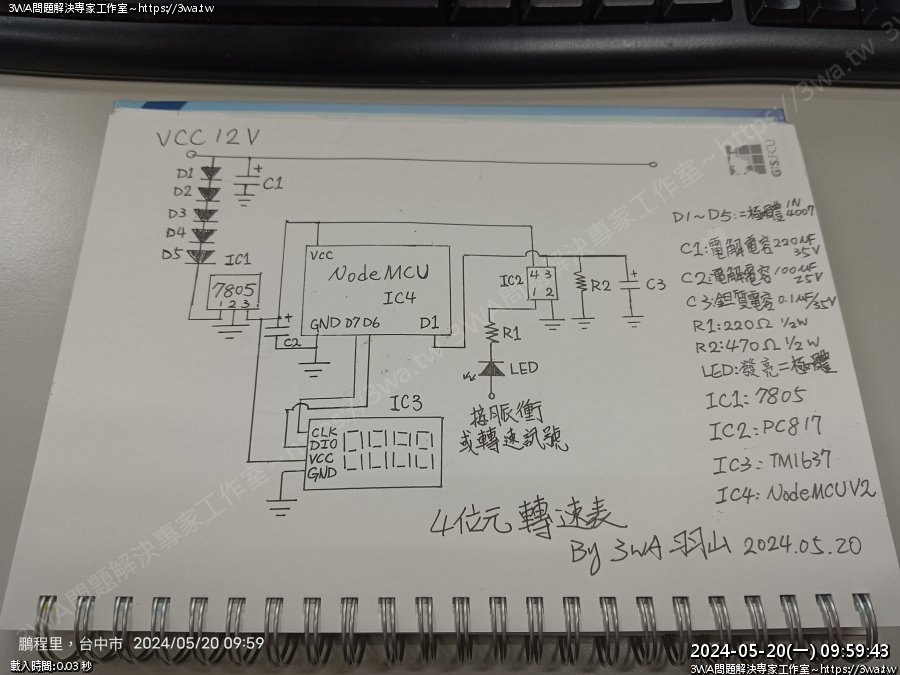 3WA問題解決專家工作室~https://3wa.tw
3WA問題解決專家工作室~https://3wa.tw
VCC 12V
GIS.FCU
D1
D2
D3
D4
D5
C1
IC1
7805
1 2 3
C2
VCC
NodeMCU
IC4
GND D7 D6 D1
IC2
4 3
1 2
R2
C3
R1
LED
接脈衝
或轉速訊號
IC3
CLK
DIO
VCC
GND
D1~D5:二極體 1N4007
C1:電解電容 220uF 35V
C2:電解電容 100uF 25V
C3:鉭質電容 0.1uF/35V
R1:220Ω 1/2W
R2:470Ω 1/2W
LED:發亮二極體
IC1:7805
IC2:PC817
IC3:TM1637
IC4:NodeMCU V2
4位元 轉速表
By 3WA 羽山 2024.05.20
鵬程里，台中市 2024/05/20 09:59
載入時間:0.03 秒
2024-05-20(一) 09:59:43
3WA問題解決專家工作室~https://3wa.tw